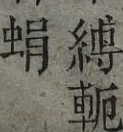 縛軛
蜎